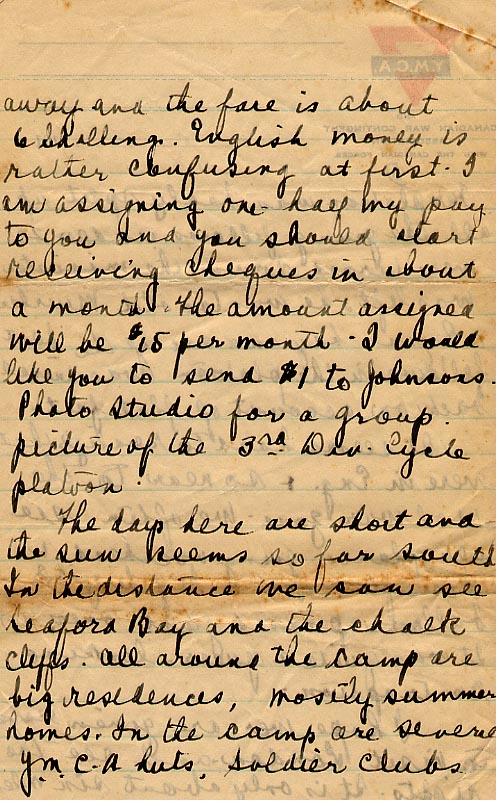 Y.M.C.A
away and the fare is about
6 Shilling. English money is
rather confusing at first. I
am assigning one-half my pay
to you and you should start
receiving cheques in about
a month. The amount assigned
will be $15 per month. I would
like you to send $1 to Johnsons.
Photo Studio for a group.
picture of the 3rd Div. Cycle
platoon.
The days here are short and
the sun seems so far south
In the distance we can see
Seaford Bay and the chalk
cliffs. All around the camp are
big residences, mostly summer
homes. In the camp are several
Y.M.C.A huts, Soldier Clubs